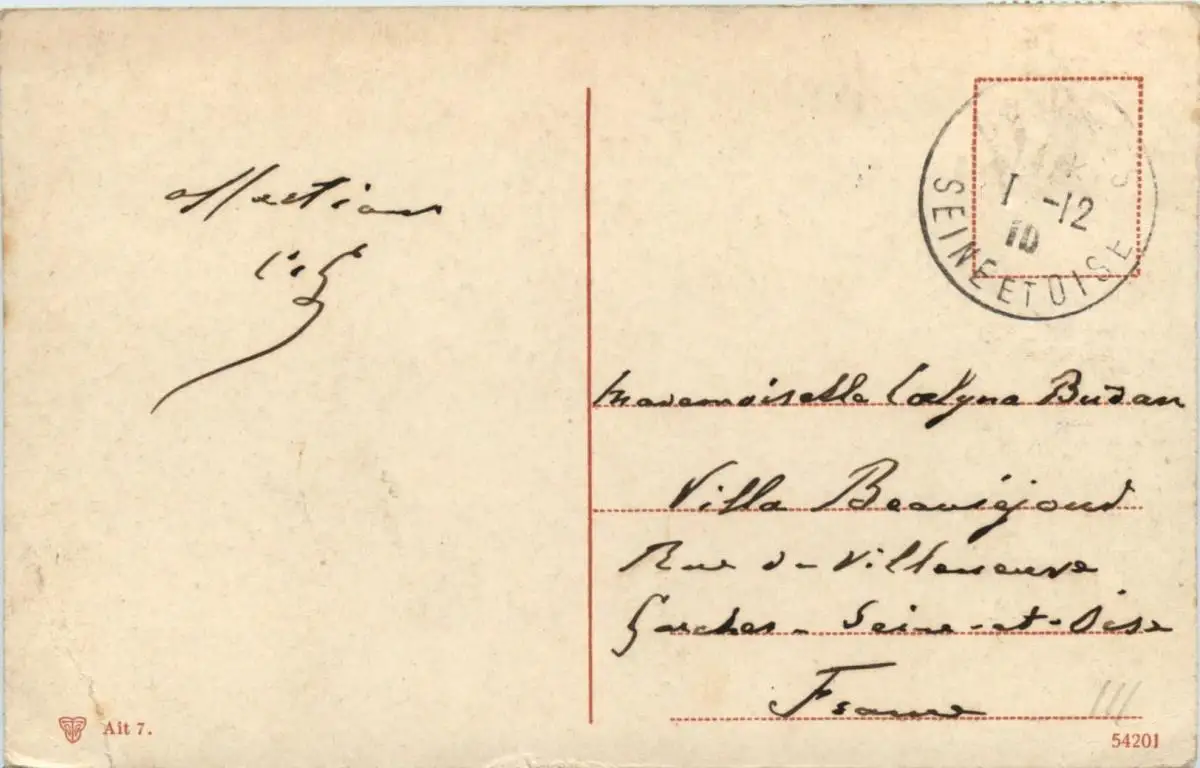 affections
1 -12
10
SEINE ET OISE
Mademoiselle Budan
Villa Beauséjour
Rue de Villeneuve
Garches - Seine-et-Oise
France
Ait 7.
54201